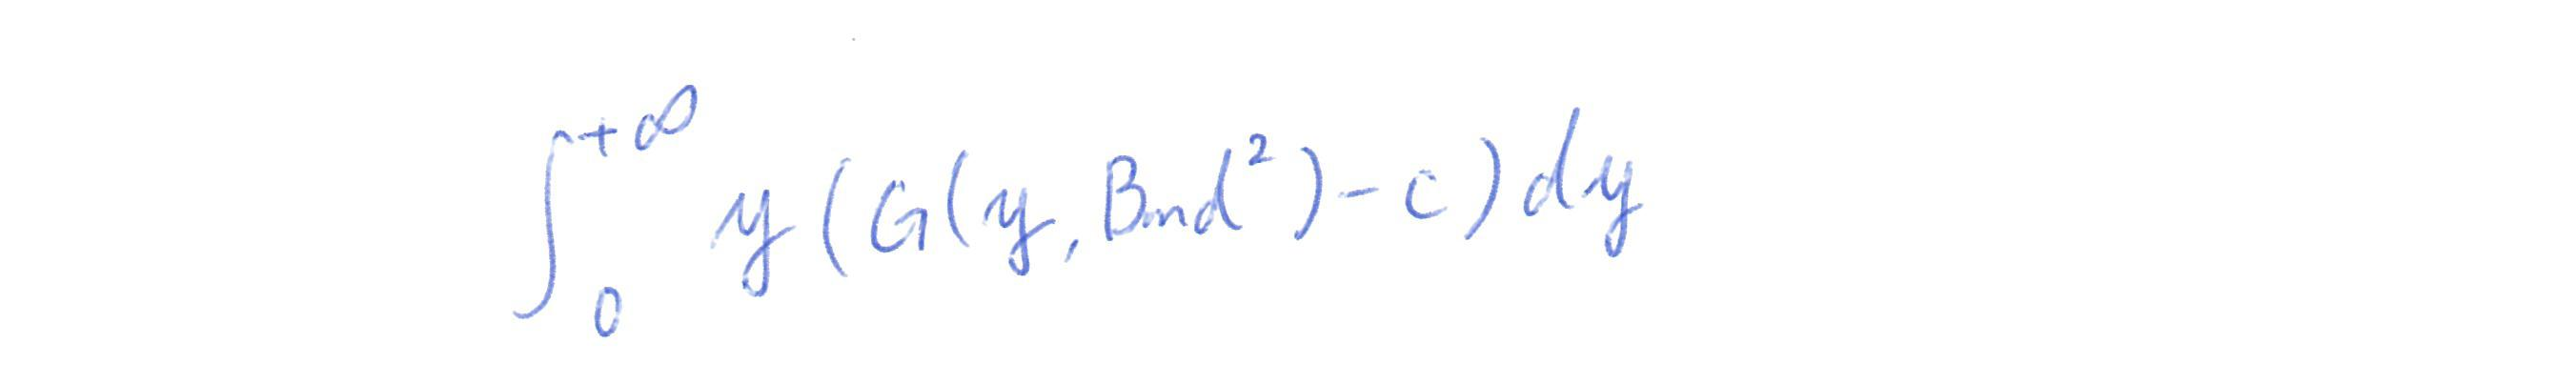 $\int_{0}^{+\infty} y(G(y, Bmd^{2})-c)dy$